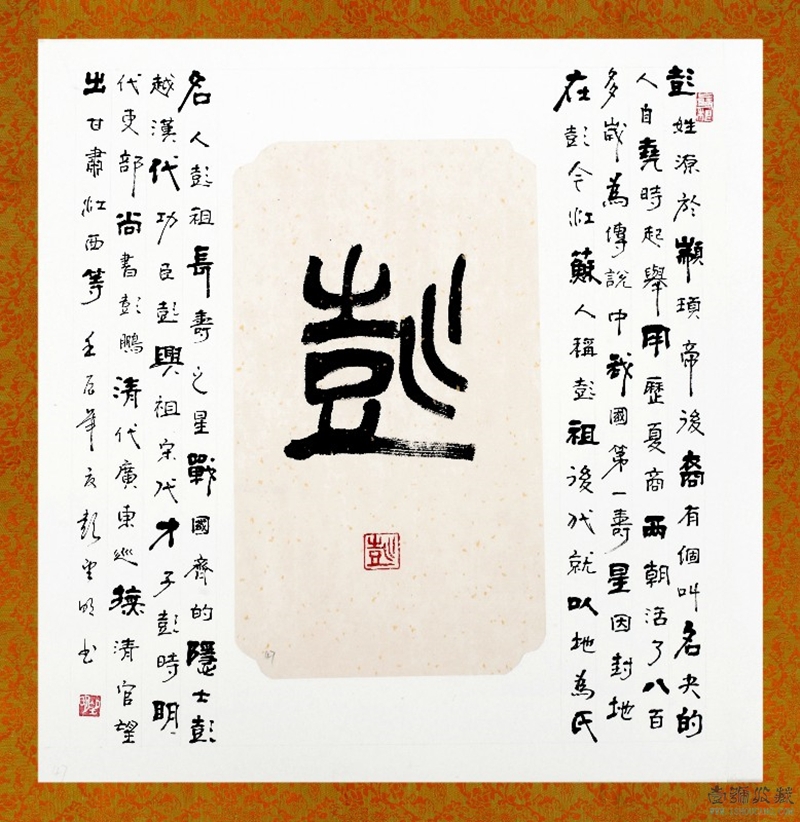 彭姓源於顓頊帝後裔有個叫名夬的
人自堯時起舉用歷夏商兩朝活了八百
多歲為傳說中我國第一壽星因封地
在彭今江蘇人稱彭祖後代就以地為氏
彭
彭
名人彭祖長壽之星戰國齊的隱士彭
越漢代功臣彭興祖宋代才子彭時明
代吏部尚書彭鵬清代廣東巡撫清官望
出甘肅江西等 彭 明书
壹號收藏